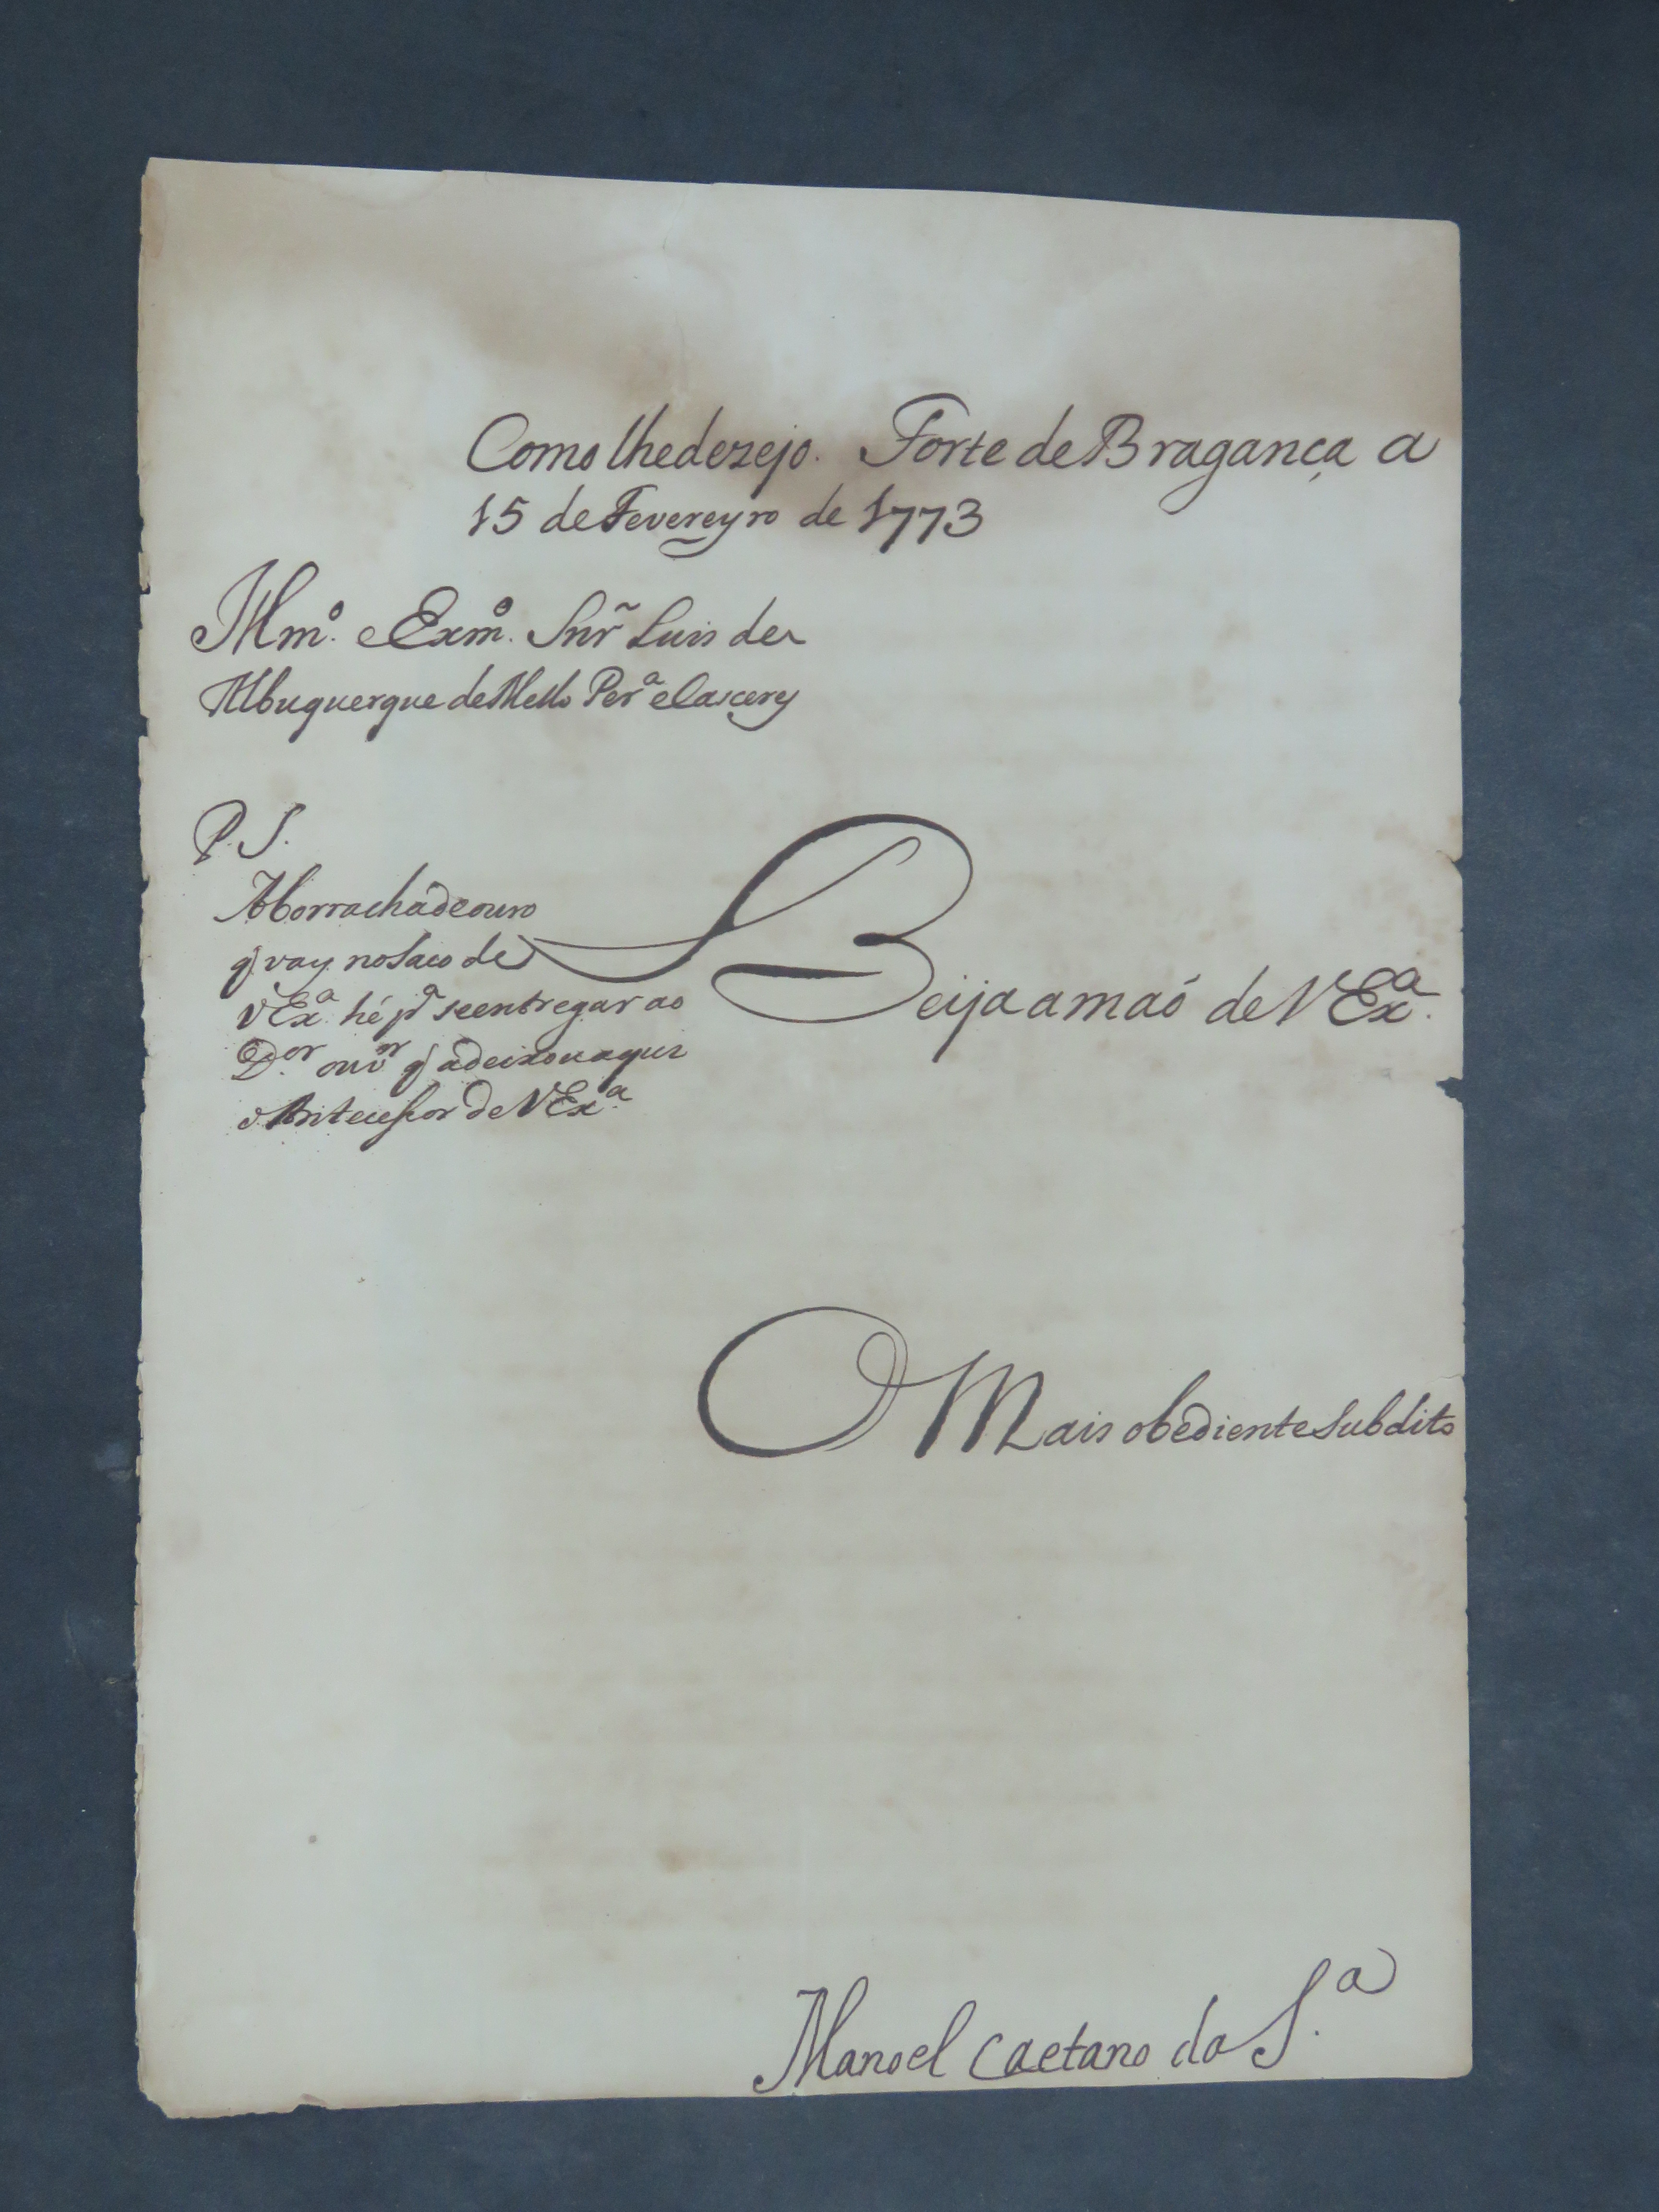 Como lhe dezejo. Forte de Bragança a
15 de Fevereyro de 1773
Illmº. e Exmº. Snr̃ Luis de
Albuquerque de Mello Perª e Caseres
P. S.
A borracha de ouro
q̃ vay no saco de
V Exª. hé pª se entregar ao
D.or ouvor q̃ a deixou aqui
o Antecessor de V Exª.
Beija a maó de V Exª.
O Mais obediente subdito
Manoel Caetano da S.ª